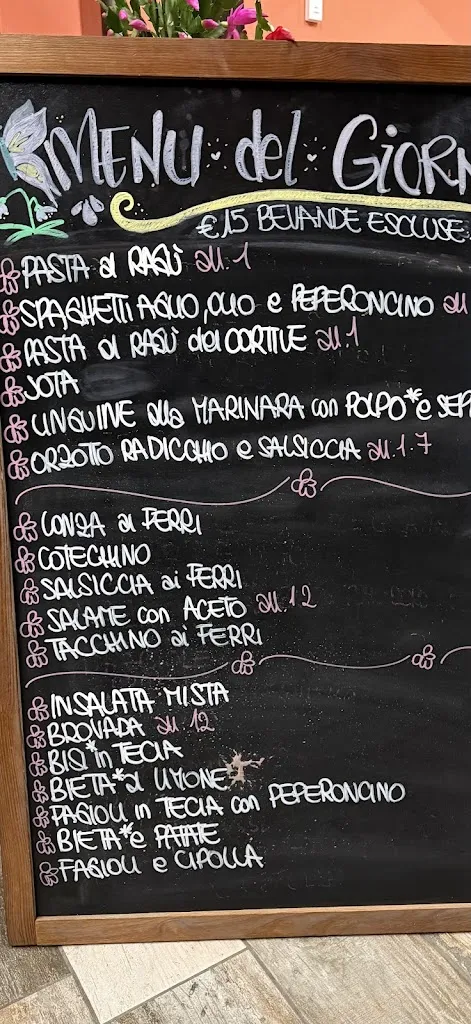 MENU del GIORN
€15 BEVANDE ESCLUSE
PASTA al RAGÙ all. 1
SPAGHETTI AGLIO, OLIO e PEPERONCINO all
PASTA al RAGÙ del CORTILE all. 1
JOTA
LINGUINE alla MARINARA con POLPO* e SEP
ORZOTTO RADICCHIO e SALSICCIA all. 1.7
LONZA ai FERRI
COTECHINO
SALSICCIA ai FERRI
SALAME con ACETO all. 12
TACCHINO ai FERRI
INSALATA MISTA
BROVADA all. 12
BISI* in TECIA
BIETA* al LIMONE
FAGIOLI in TECIA con PEPERONCINO
BIETA* e PATATE
FAGIOLI e CIPOLLA